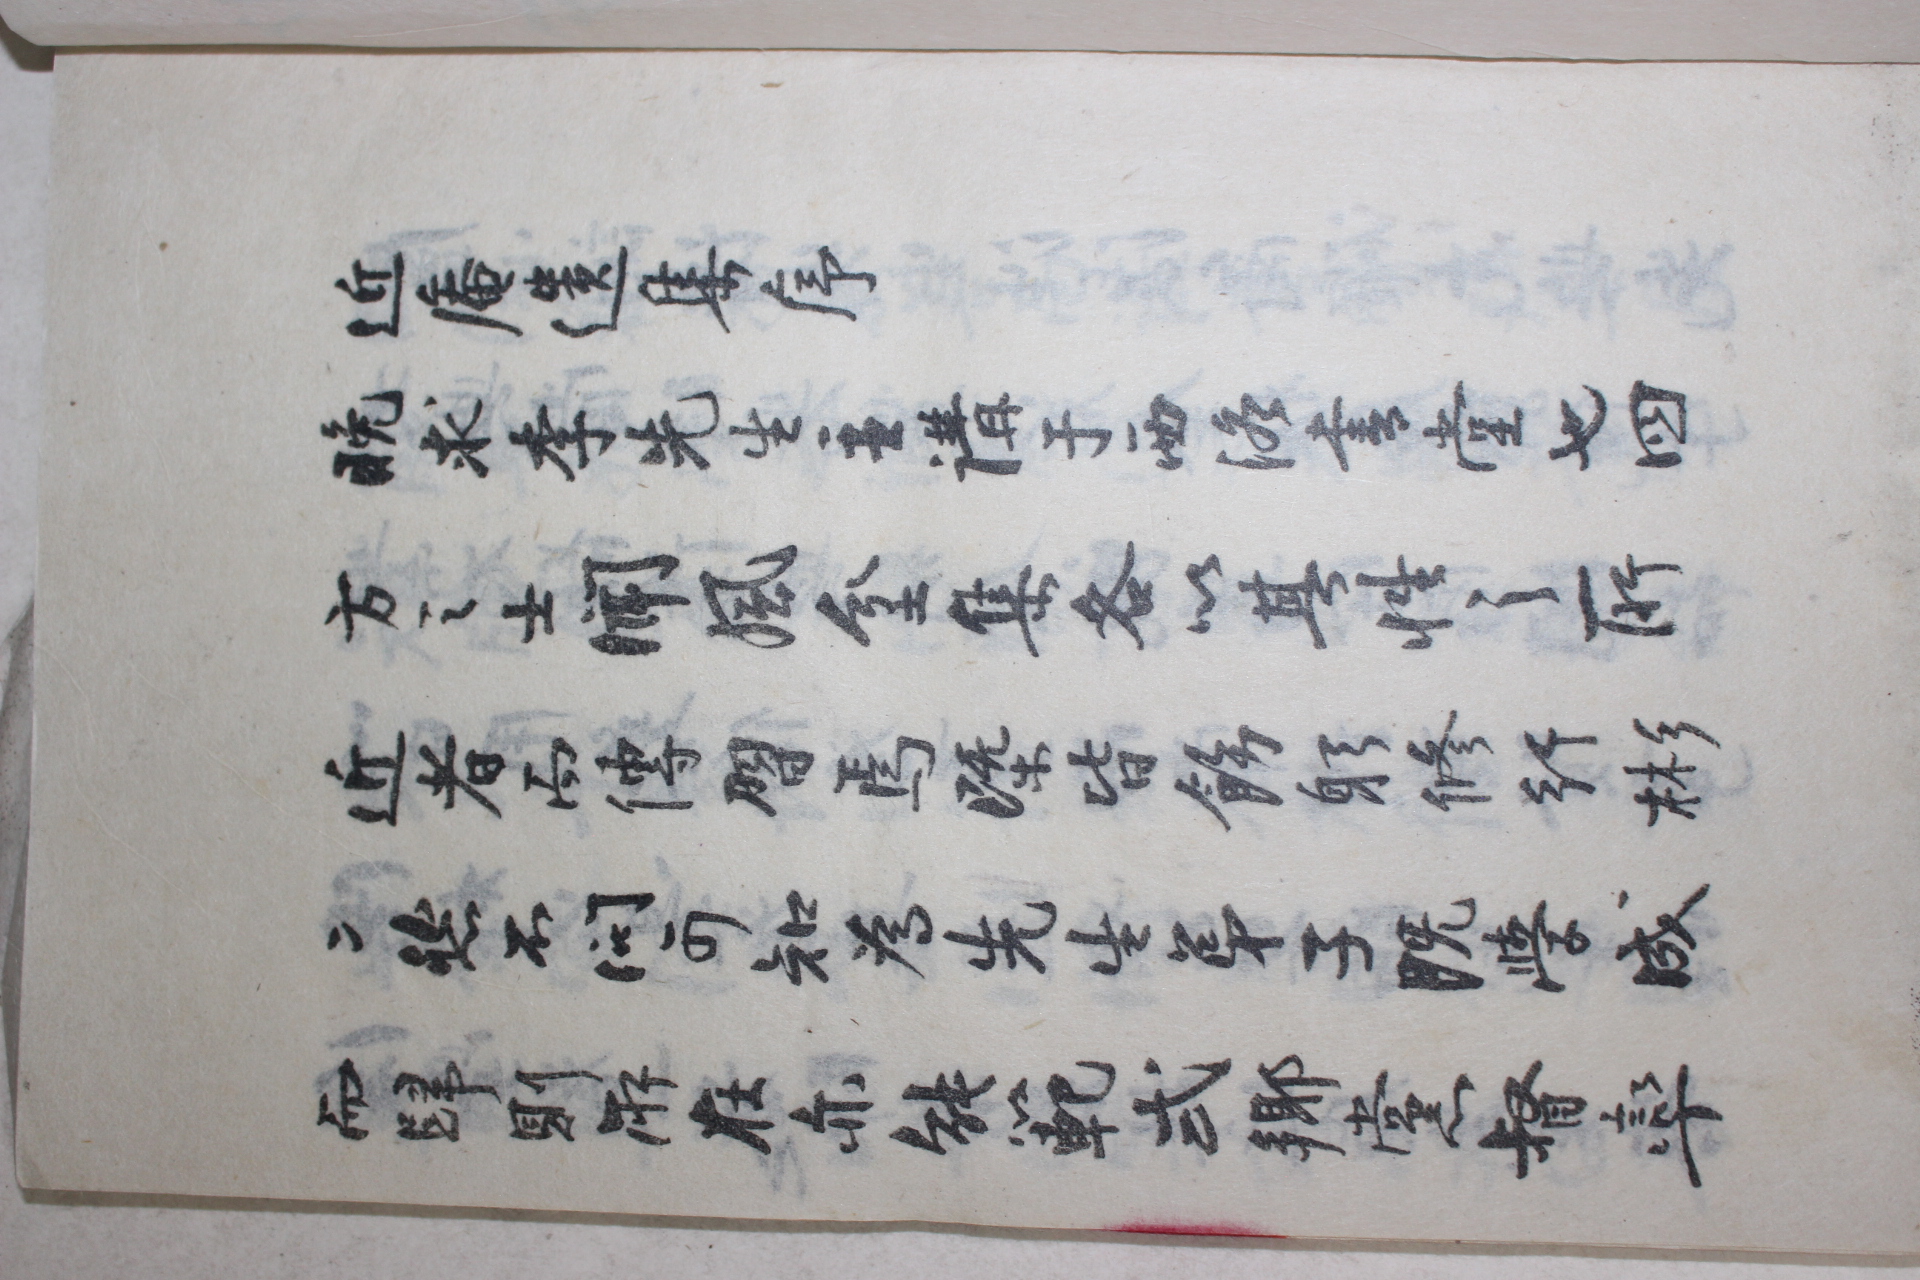 近庵遺集序
晩求李先生主講于西洛書堂也四
方之士聞風坌集各以其性之所
近者而傳習焉槩皆飭躬修行彬
〻然不問可知為先生弟子既學成
而歸則所在亦能以範式鄉黨督率